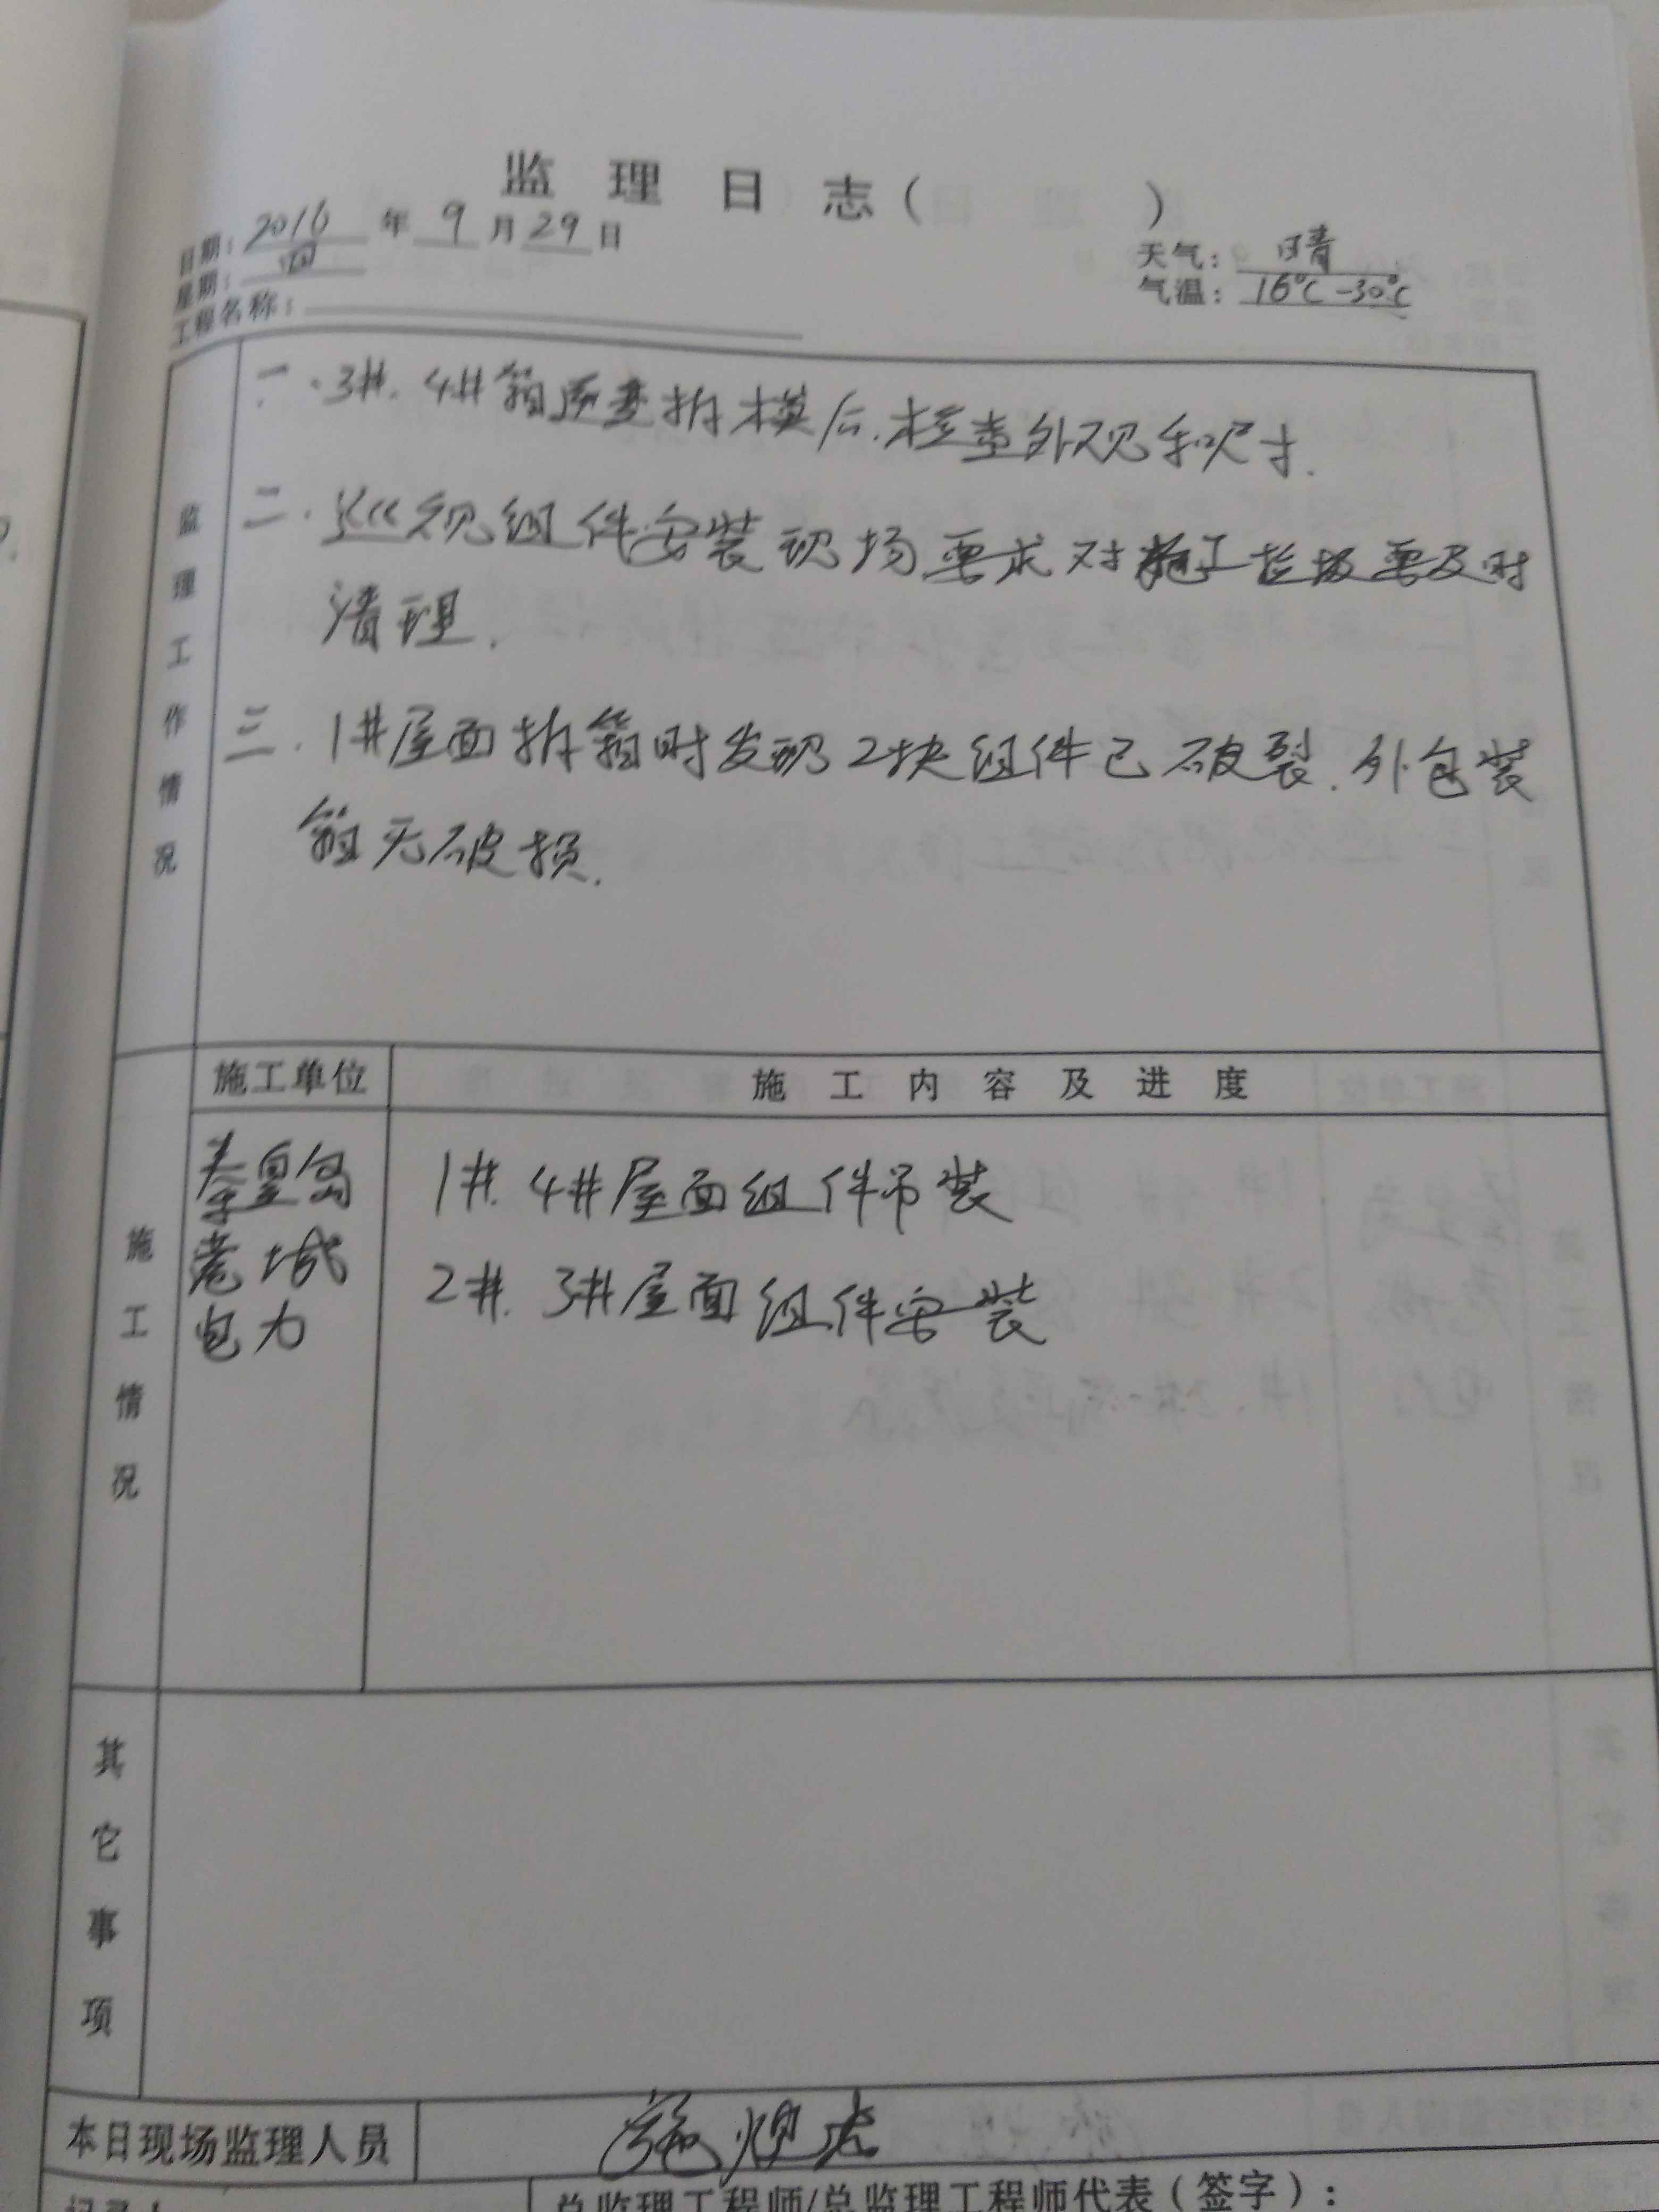 监理日志（ ）
日期：2016年9月29日
星期：四
天气：晴
气温：16℃-30℃
工程名称：
监理工作情况
一.3#.4#箱变拆模后.检查外观和尺寸.
二.巡视组件安装现场要求对施工垃圾要及时
清理.
三.1#屋面拆箱时发现2块组件已破裂.外包装
箱无破损.
施工情况
施工单位
施工内容及进度
秦皇岛
港城
电力
1#.4#屋面组件吊装
2#.3#屋面组件安装
其它事项
本日现场监理人员
施
总监理工程师/总监理工程师代表（签字）：